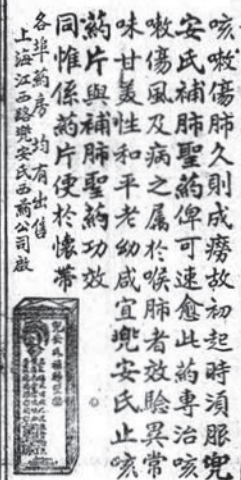 咳嗽傷肺久則成癆故初起時須服兜
安氏補肺聖药俾可速愈此药專治咳
嗽傷風及病之属於喉肺者效驗異常
味甘美性和平老幼咸宜兜安氏止咳
药片與補肺聖药功效
同惟係药片便於懷帶
各埠药房均有出售
上海江西路兜安氏西药公司啟